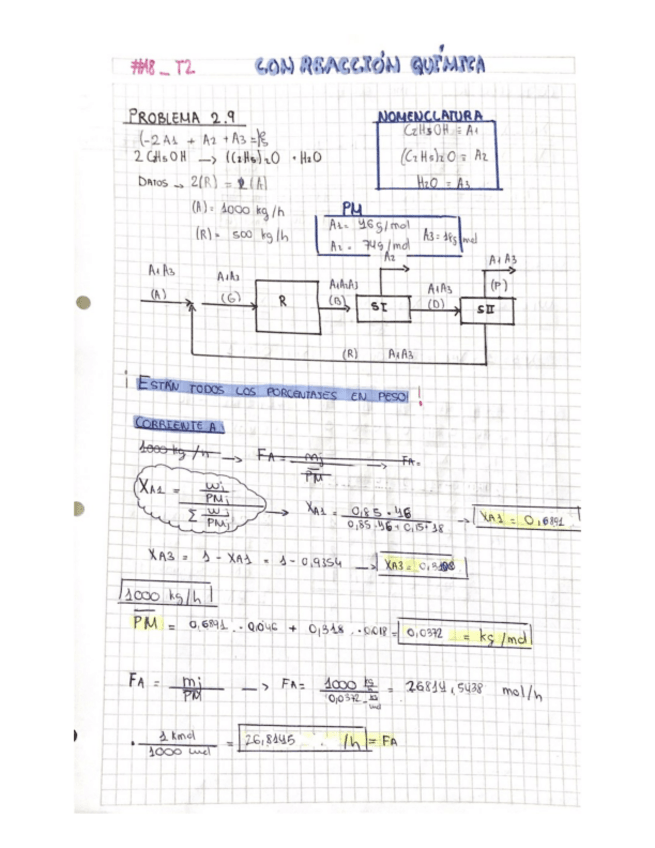 #18_T2 CON REACCIÓN QUÍMICA
PROBLEMA 2.9
(-2A1 + A2 + A3 = )ξ
2 C2H5OH → ((C2H5)2O + H2O
DATOS → 2(R) = (A)
(A) = 1000 kg/h
(R) = 500 kg/h
NOMENCLATURA
C2H5OH = A1
(C2H5)2O = A2
H2O = A3
PM
A1 = 46g/mol
A2 = 74g/mol
A3 = 18g/mol
A2
A1 A3
(P)
A1 A3
(A)
A1A3
(G)
R
A1A2A3
(B)
SI
A1A3
(D)
SII
(R) A1A3
¡ESTÁN TODOS LOS PORCENTAJES EN PESO!
CORRIENTE A:
1000 kg/h → FA = mj/PM → FA=
XA1 = (wi/PMi)/(Σ wj/PMj) → XA1 = 0,85·46/(0,85·46+0,15·18) → XA1 = 0,6891
XA3 = 1 - XA1 = 1 - 0,9354 → XA3 =
1000 kg/h
PM = 0,6891 · 0,046 + 0,318 · 0,018 = 0,0372 = kg/mol
FA = mj/PM → FA = 1000 kg/h / 0,0372 kg/mol = 26814,5438 mol/h
· 1 kmol/1000 mol = 26,8145 /h = FA